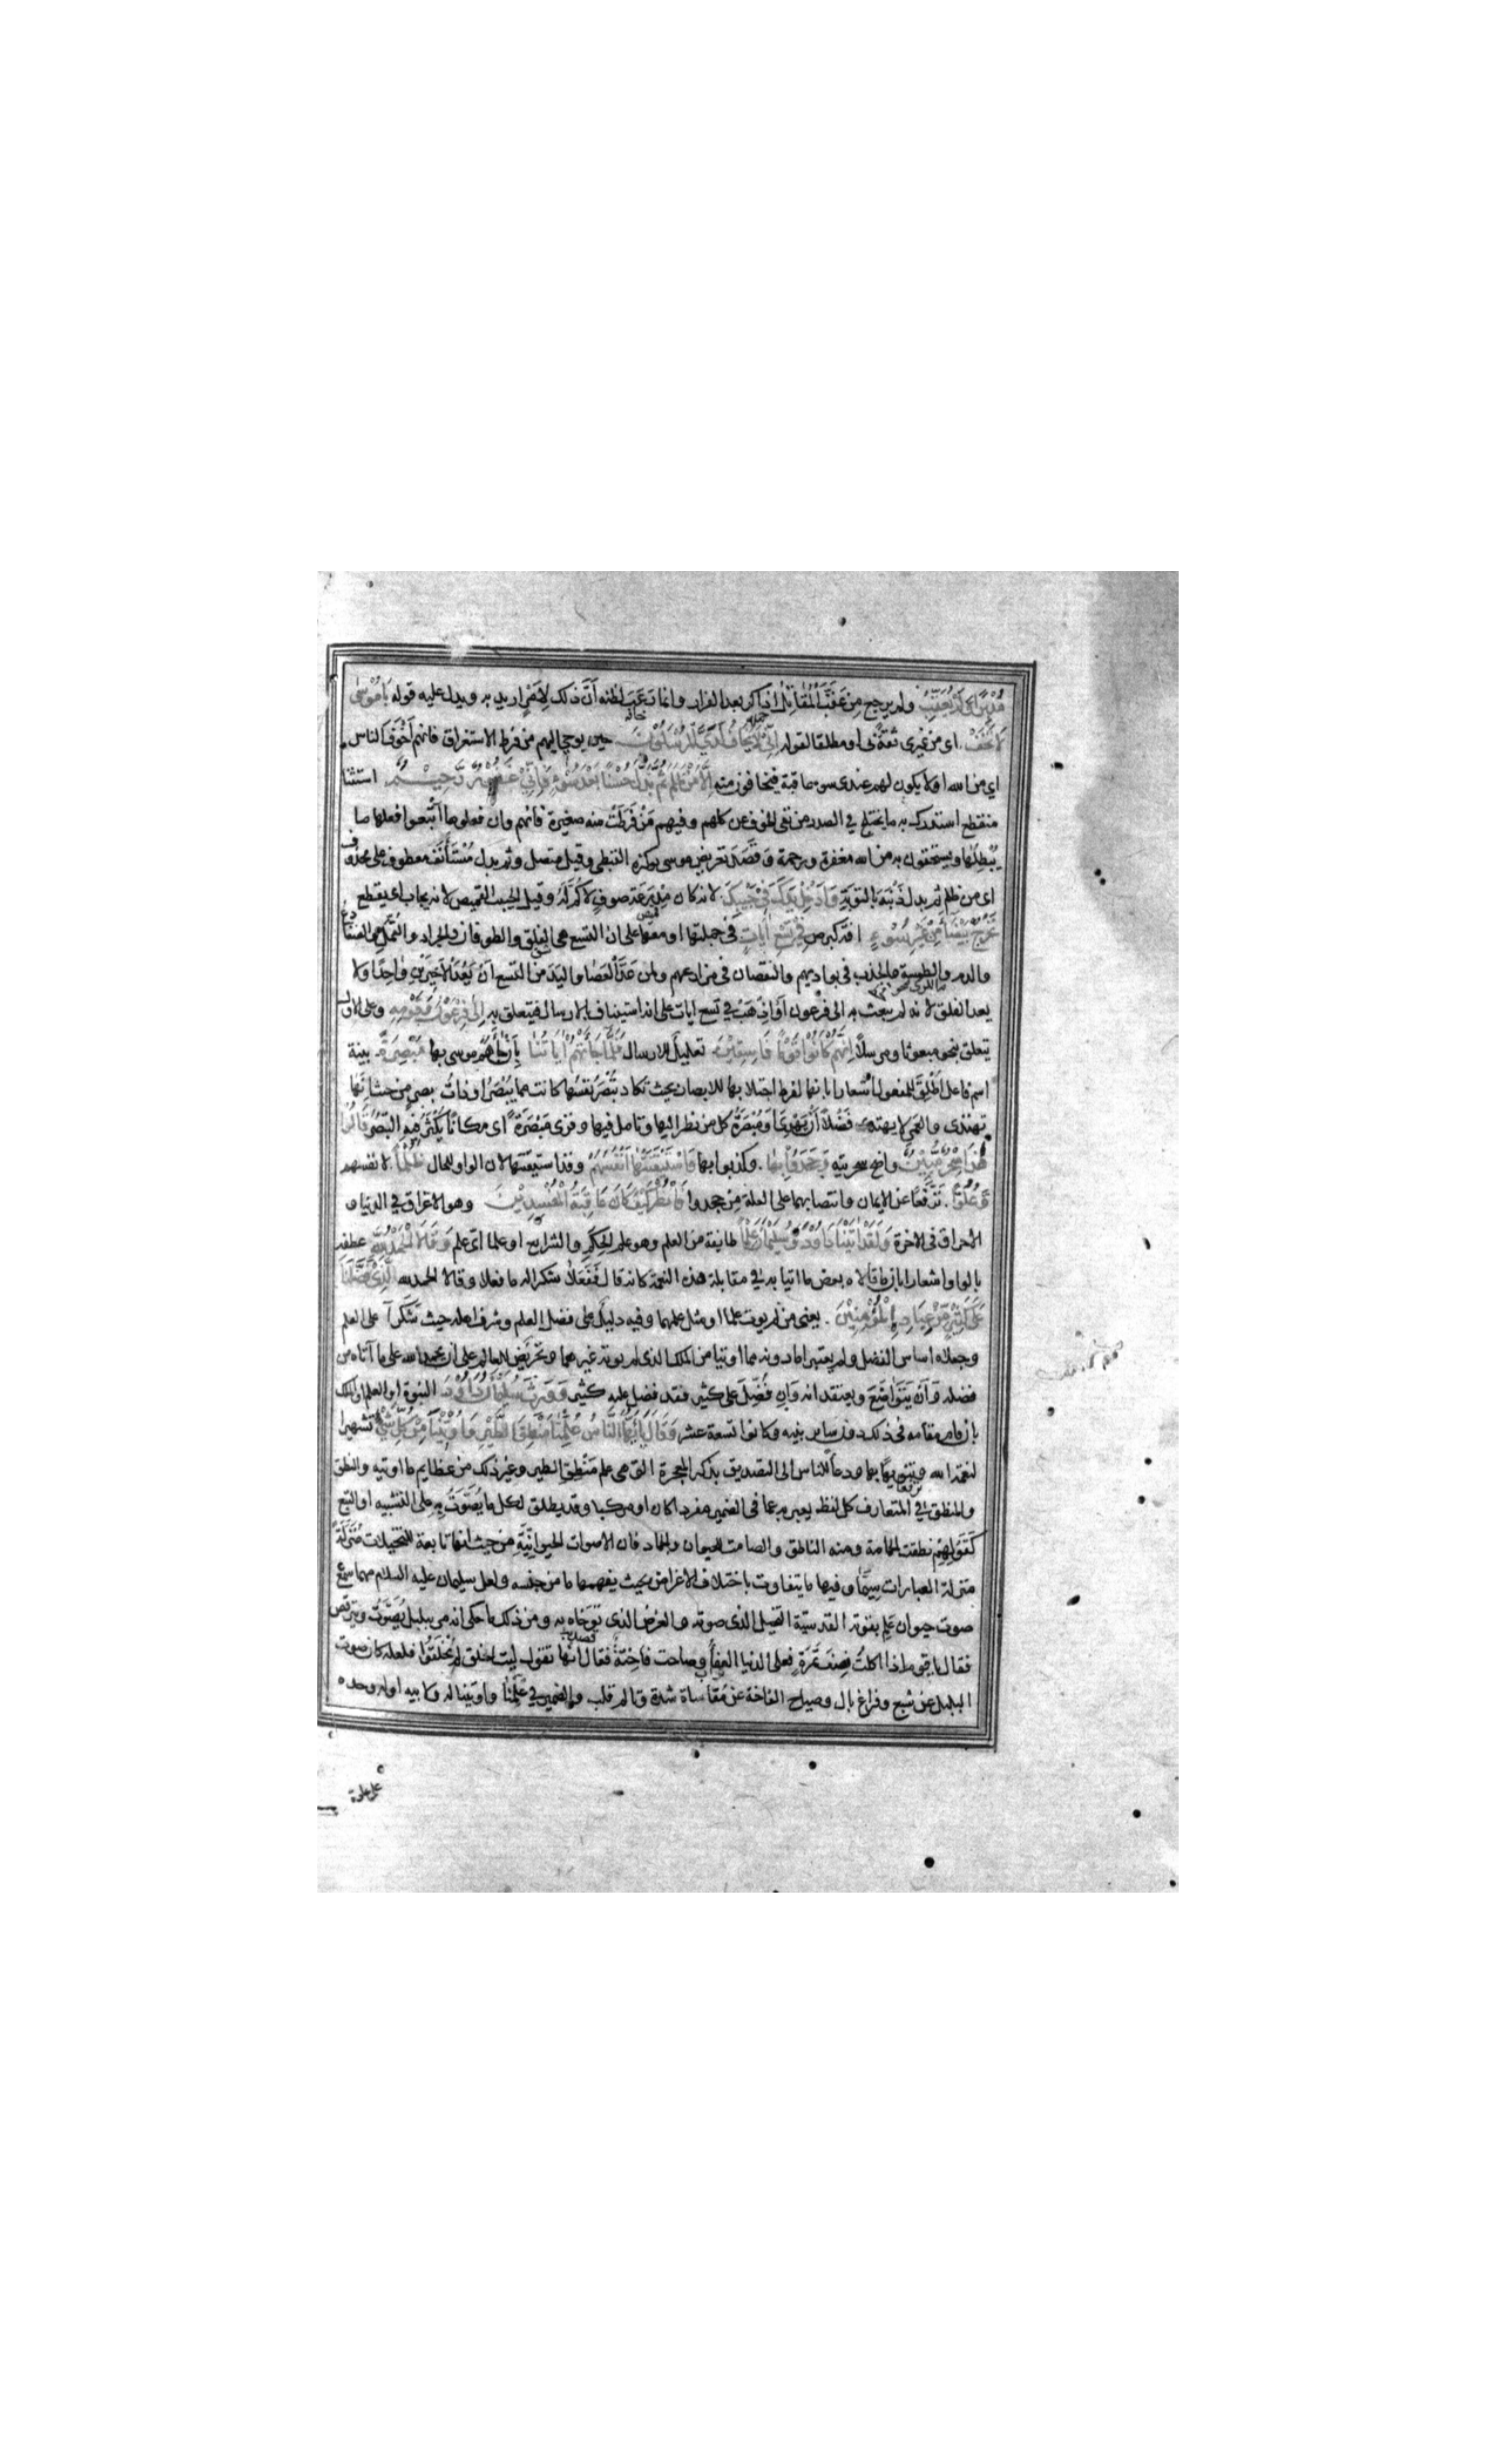 مُدْبِرًا وَلَمْ يُعَقِّبْ ولم يرجع من عَقَّبَ الْمُقَاتِلُ اذا كر بعد الفرار وانما رَعَبَ لظنه أنّ ذلك لِأَمْرٍ اريد به ويدل عليه قوله يَا مُوْسٰى
لَا تَخَفْ اى من غيرى ثقةً بى او مطلقا لقوله اِنِّيْ لَا يَخَافُ لَدَيَّ الْمُرْسَلُوْنَ حين يوحى اليهم من فرط الاستغراق فانهم أَخْوَفُ الناس
اى من الله او لا يكون لهم عندى سوء عاقبة فيخافون منه اِلَّا مَنْ ظَلَمَ ثُمَّ بَدَّلَ حُسْنًا بَعْدَ سُوْءٍ فَاِنِّيْ غَفُوْرٌ رَّحِيْمٌ استثنا
منقطع استدرك به ما يختلج في الصدر من نفى الخوف عن كلهم وفيهم مَنْ فَرَطَتْ منه صغيرة فانهم وان فعلوها أَتْبَعوا فعلها ما
يُبْطِلُهَا ويستحقون به من الله مغفرة ورحمة وَقَصَدَ تعريض موسى بوكزه القبطى وقيل متصل وثم بدل مُسْتَأنَفٌ معطوف على محذوف
اى من ظلم ثم بدل ذَنْبَهُ بالتوبة وَاَدْخِلْ يَدَكَ فِيْ جَيْبِكَ لانه كان مِدْرَعَة صوفٍ لا كُمَّ لَهُ وقيل الجيب القميص لانه يجاب اى يقطع
تَخْرُجْ بَيْضَآءَ مِنْ غَيْرِ سُوْءٍ افة كبرص فِيْ تِسْعِ اٰيَاتٍ فى جملتها او معها على ان التسع هى الفلق والطوفان والجراد والقُمَّل والضفادع
والدم والطمسة والجدب فى بواديهم والنقصان فى مزارعهم ولمن عَدَّ الْعَصَا واليدَ من التسع اَنْ يَعُدَّ الأَخِيرَيْنِ وٰاحِدًا ولا
يعد الفلق لانه لم يبعث به الى فرعون اَوْ اِذْهَبْ في تسع ايات على انه استيناف بالارسال فيتعلق به اِلٰى فِرْعَوْنَ وَقَوْمِهٖ وعلى الاول
يتعلق بنحو مبعوثا ومرسلًا اِنَّهُمْ كَانُوْا قَوْمًا فَاسِقِيْنَ تعليل للارسال فَلَمَّا جَآءَتْهُمْ اٰيَاتُنَا بِأَنْ جاءهم موسى بها مُبْصِرَةً بينة
اسم فاعل اُطْلِقَ للمفعول اشعارا بانها لفرط اجتلائها للابصار بحيث تكاد تُبْصِرُ نفسَها لو كانت مما يُبْصَرُ او ذاتُ بصر من حيث انها
تهتدى والعمى لا يهتدى فَضْلًا أَنْ يَهْدِىَ او مُبْصِرَةً كل من نظر اليها وتامل فيها وقرى مَبْصَرَةً اى مكانًا يَكْثُرُ فيه التبصُّرُ قَالُوا
هٰذَا سِحْرٌ مُّبِيْنٌ واضح سحريته وَجَحَدُوْا بِهَا وكذبوا بها وَاسْتَيْقَنَتْهَا اَنْفُسُهُمْ وقد استيقنتها لان الواو للحال ظُلْمًا لانفسهم
وَّعُلُوًّا تَرَفُّعًا عن الايمان وانتصابهما على العلة من جحدوا فَانْظُرْ كَيْفَ كَانَ عَاقِبَةُ الْمُفْسِدِيْنَ وهو الاغراق في الدنيا و
الاحراق فى الاخرة وَلَقَدْ اٰتَيْنَا دَاوُدَ وَسُلَيْمَانَ عِلْمًا طائفة من العلم وهو علم الحِكَمِ والشرايع او علما اىّ علم وَقَالَا الْحَمْدُ لِلّٰهِ عطفه
بالواو اشعارا بان ما قالاه بعض ما اتيا به في مقابلة هذه النعمة كانه قال فَفَعَلَا شكرا له ما فعلا وقالا الحمد لله الَّذِيْ فَضَّلَنَا
عَلٰى كَثِيْرٍ مِّنْ عِبَادِهِ الْمُؤْمِنِيْنَ يعنى من لم يوت علما او مثل علمهما وفيه دليل على فضل العلم وشرف اهله حيث شَكَرَا على العلم
وجعلاه اساس الفضل ولم يعتبرا ما دونه مما اوتيا من الملك الذى لم يوته غيرهما وتحريض للعالم على ان يحمد الله على ما آتاه من
فضله وَاَنْ يَتَوَاضَعَ ويعتقد انه وَاِن فُضِّلَ على كثير فقد فضل عليه كثير وَوَرِثَ سُلَيْمٰنُ دَاوُدَ النبوة او العلم او الملك
بان قام مقامه فى ذلك دون ساير بنيه وكانوا تسعة عشر وَقَالَ يَا اَيُّهَا النَّاسُ عُلِّمْنَا مَنْطِقَ الطَّيْرِ وَاُوْتِيْنَا مِنْ كُلِّ شَيْءٍ تشهيرا
لنعمة الله وتنويهًا بها ودعاً للناس الى التصديق بذكر المعجزة التى هى علم مَنْطِقِ الطير وغير ذلك من عظايم ما اوتيه والنطق
والمنطق في المتعارف كل لفظ يعبر به عما فى الضمير مفردا كان او مركبا وقد يطلق لكل ما يُصَوَّتُ به على التشبيه او التبع
كَقَوْلِهِمْ نطقت الحمامة ومنه الناطق والصامت للحيوان والجماد فان الاصوات الحيوانِيَّةِ من حيث انها تابعة للتخيلات مُنَزَّلَةٌ
منزلة العبارات سِيَّمَا وفيها ما يتفاوت باختلاف الاغراض بحيث يفهمها ما من جنسه ولعل سليمان عليه السلام مهما سمع
صوت حيوان عَلِمَ بقوته القدسيّة التخيل الذى صوته والغرض الذى تَوَخَّاه به ومن ذلك ما حكى انه مر ببلبل يُصَوِّتُ ويترقص
فقال يقول اذا اكلتُ نِصفَ تَمْرَةٍ فعلى الدنيا العفا وصاحت فاخِتَةٌ فقال انها تقول ليت الخلق لم يُخْلَقُوا فلعله كان صوت
البلبل عن شبع وفراغ بال وصياح الفاختة عن مُقاساة شدة وتالم قلب والضمير في عُلِّمْنَا واوتينا له ولابيه او له وحده